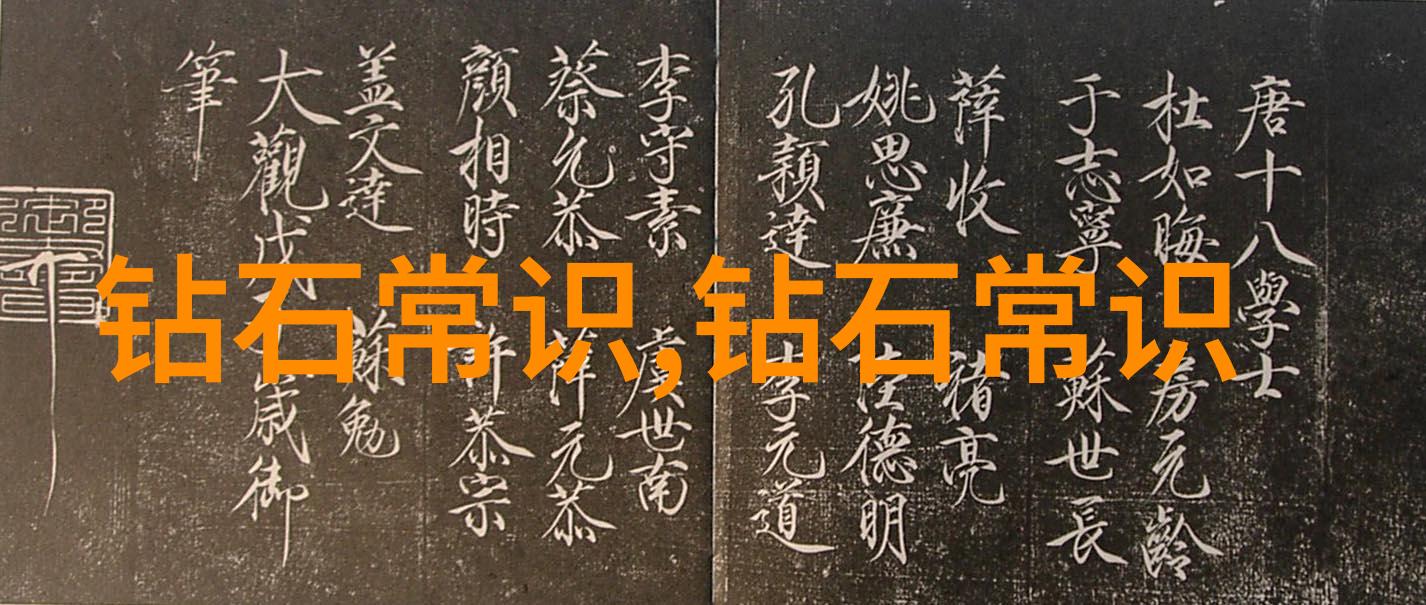 唐十八學士
杜如晦 房元齡
于志寧 蘇世長
薛收 褚亮
姚思廉 陸德明
孔穎達 李元道
李守素 虞世南
蔡允恭 薛元恭
顔相時 許恭宗
盖文達 蘇勉
大觀戊歲御
筆
钻石常识,钻石常识